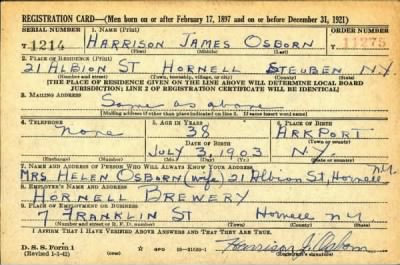 REGISTRATION CARD—(Men born on or after February 17, 1897 and on or before December 31, 1921)
SERIAL NUMBER 1. NAME (Print) ORDER NUMBER
T 1214 HARRISON JAMES OSBORN 11275
(First) (Middle) (Last)
2. PLACE OF RESIDENCE (Print)
21 ALBION ST HORNELL STEUBEN N.Y.
(Number and street) (Town, township, village, or city) (County) (State)
[THE PLACE OF RESIDENCE GIVEN ON THE LINE ABOVE WILL DETERMINE LOCAL BOARD
JURISDICTION; LINE 2 OF REGISTRATION CERTIFICATE WILL BE IDENTICAL]
3. MAILING ADDRESS
Same as above
[Mailing address if other than place indicated on line 2. If same insert word same]
4. TELEPHONE 5. AGE IN YEARS 6. PLACE OF BIRTH
none 38 ARKPORT
DATE OF BIRTH (Town or county)
JULY 3, 1903 N.Y.
(Exchange) (Number) (Mo.) (Day) (Yr.) (State or country)
7. NAME AND ADDRESS OF PERSON WHO WILL ALWAYS KNOW YOUR ADDRESS
MRS HELEN OSBORN (wife) 21 Albion St, Hornell N.Y.
8. EMPLOYER'S NAME AND ADDRESS
HORNELL BREWERY
9. PLACE OF EMPLOYMENT OR BUSINESS
7 FRANKLIN ST Hornell NY
(Number and street or R. F. D. number) (Town) (County) (State)
I AFFIRM THAT I HAVE VERIFIED ABOVE ANSWERS AND THAT THEY ARE TRUE.
D. S. S. Form 1
(Revised 1-1-42) GPO Harrison J. Osborn